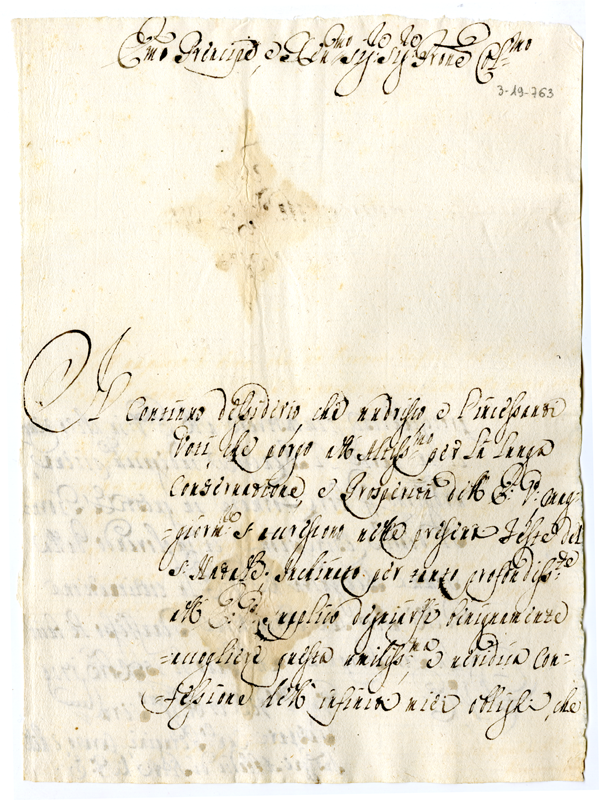 Em.mo Principe, e Sig.re Sig.re Prone Col.mo
3-19-763
Il continuo desiderio, che nudrisco e l'incessante
Voti, che porgo all'Altiss.mo per la lunga
conservazione, e Prosperità dell'E: V: mag-
=giorm.te s'accrescono nelle presenti Feste del
S. Natale. Inchinato per tanto profondiss.te
all'E: V: supplico degnarsi benignamente
=accogliere questa umiliss.ma e veridica con-
=fessione dell'infinite mie oblighi, che